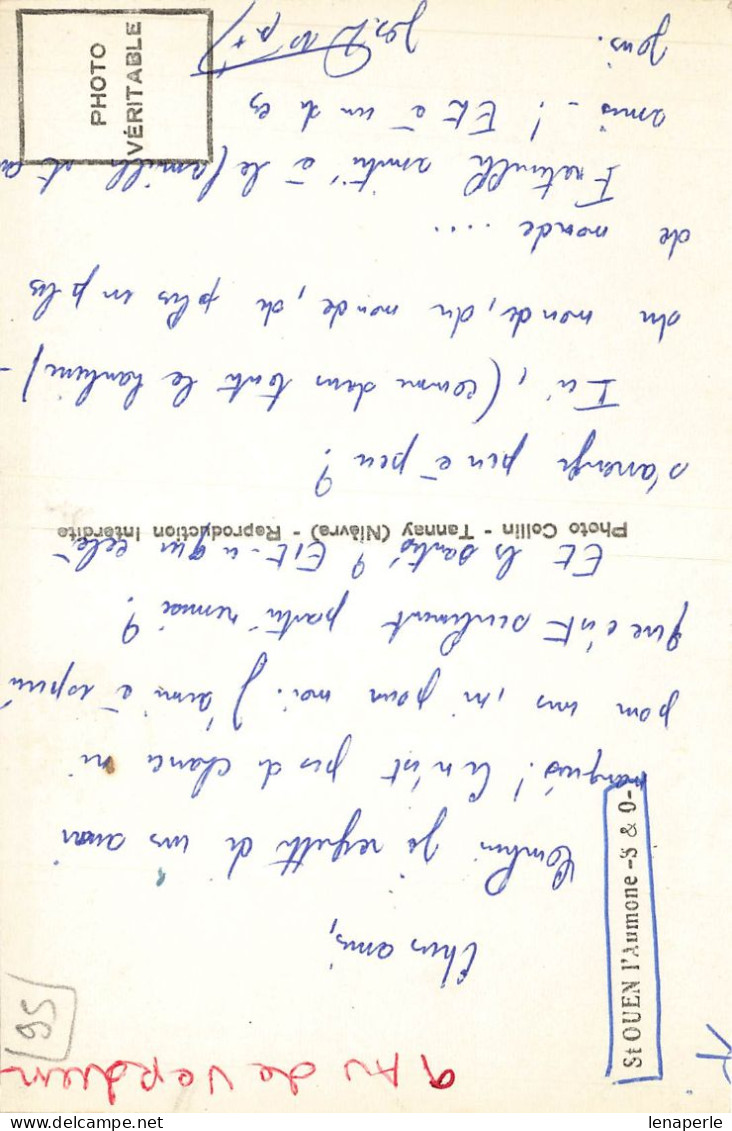 9 Av de Verdun
95
St OUEN l'Aumone - S & O -
Chers amis,
Combien je regrette de vous avoir
manqués! Ce n'est pas de chance ni
pour vous, ni pour moi. J'aime à espérer
que c'est seulement partie remise?
Et la santé? Est-ce que cela
Photo Collin - Tannay (Nièvre) - Reproduction Interdite
s'arrange peu à peu?
Ici, (comme dans toute la banlieue) -
du monde, du monde, de plus en plus
de monde ....
Fraternelle amitié à la famille et a
amis - ! Et à un de ces
jours.
PHOTO
VÉRITABLE
lenaperle